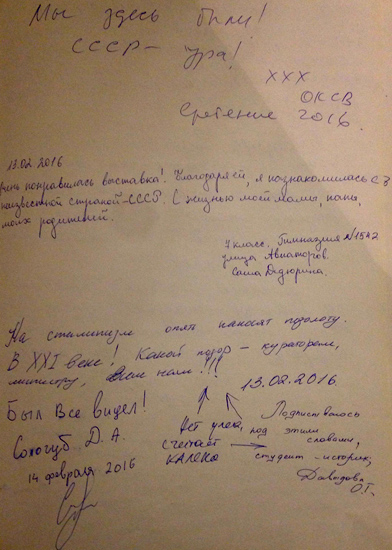 Мы здесь были!
СССР - ура!
XXX
ОКСВ
Сретение 2016.
13.02.2016
понравилась выставка! Благодаря ей, я познакомилась с
неизвестной страной - СССР. С жизнью моей мамы, папы,
моих родителей.
7 класс. Гимназия №1542
улица Авиаторов.
Саша Дедюрина.
На сталинизм опять наносят позолоту.
В XXI веке! Какой позор - кураторам,
министру, всем нам!!!
13.02.2016
Был Все видел!
Сологуб Д. А.
14 февраля 2016
Нет
считает
калека
Подписываюсь
под этими
словами,
студент-историк,
Давыдова
О.Г.